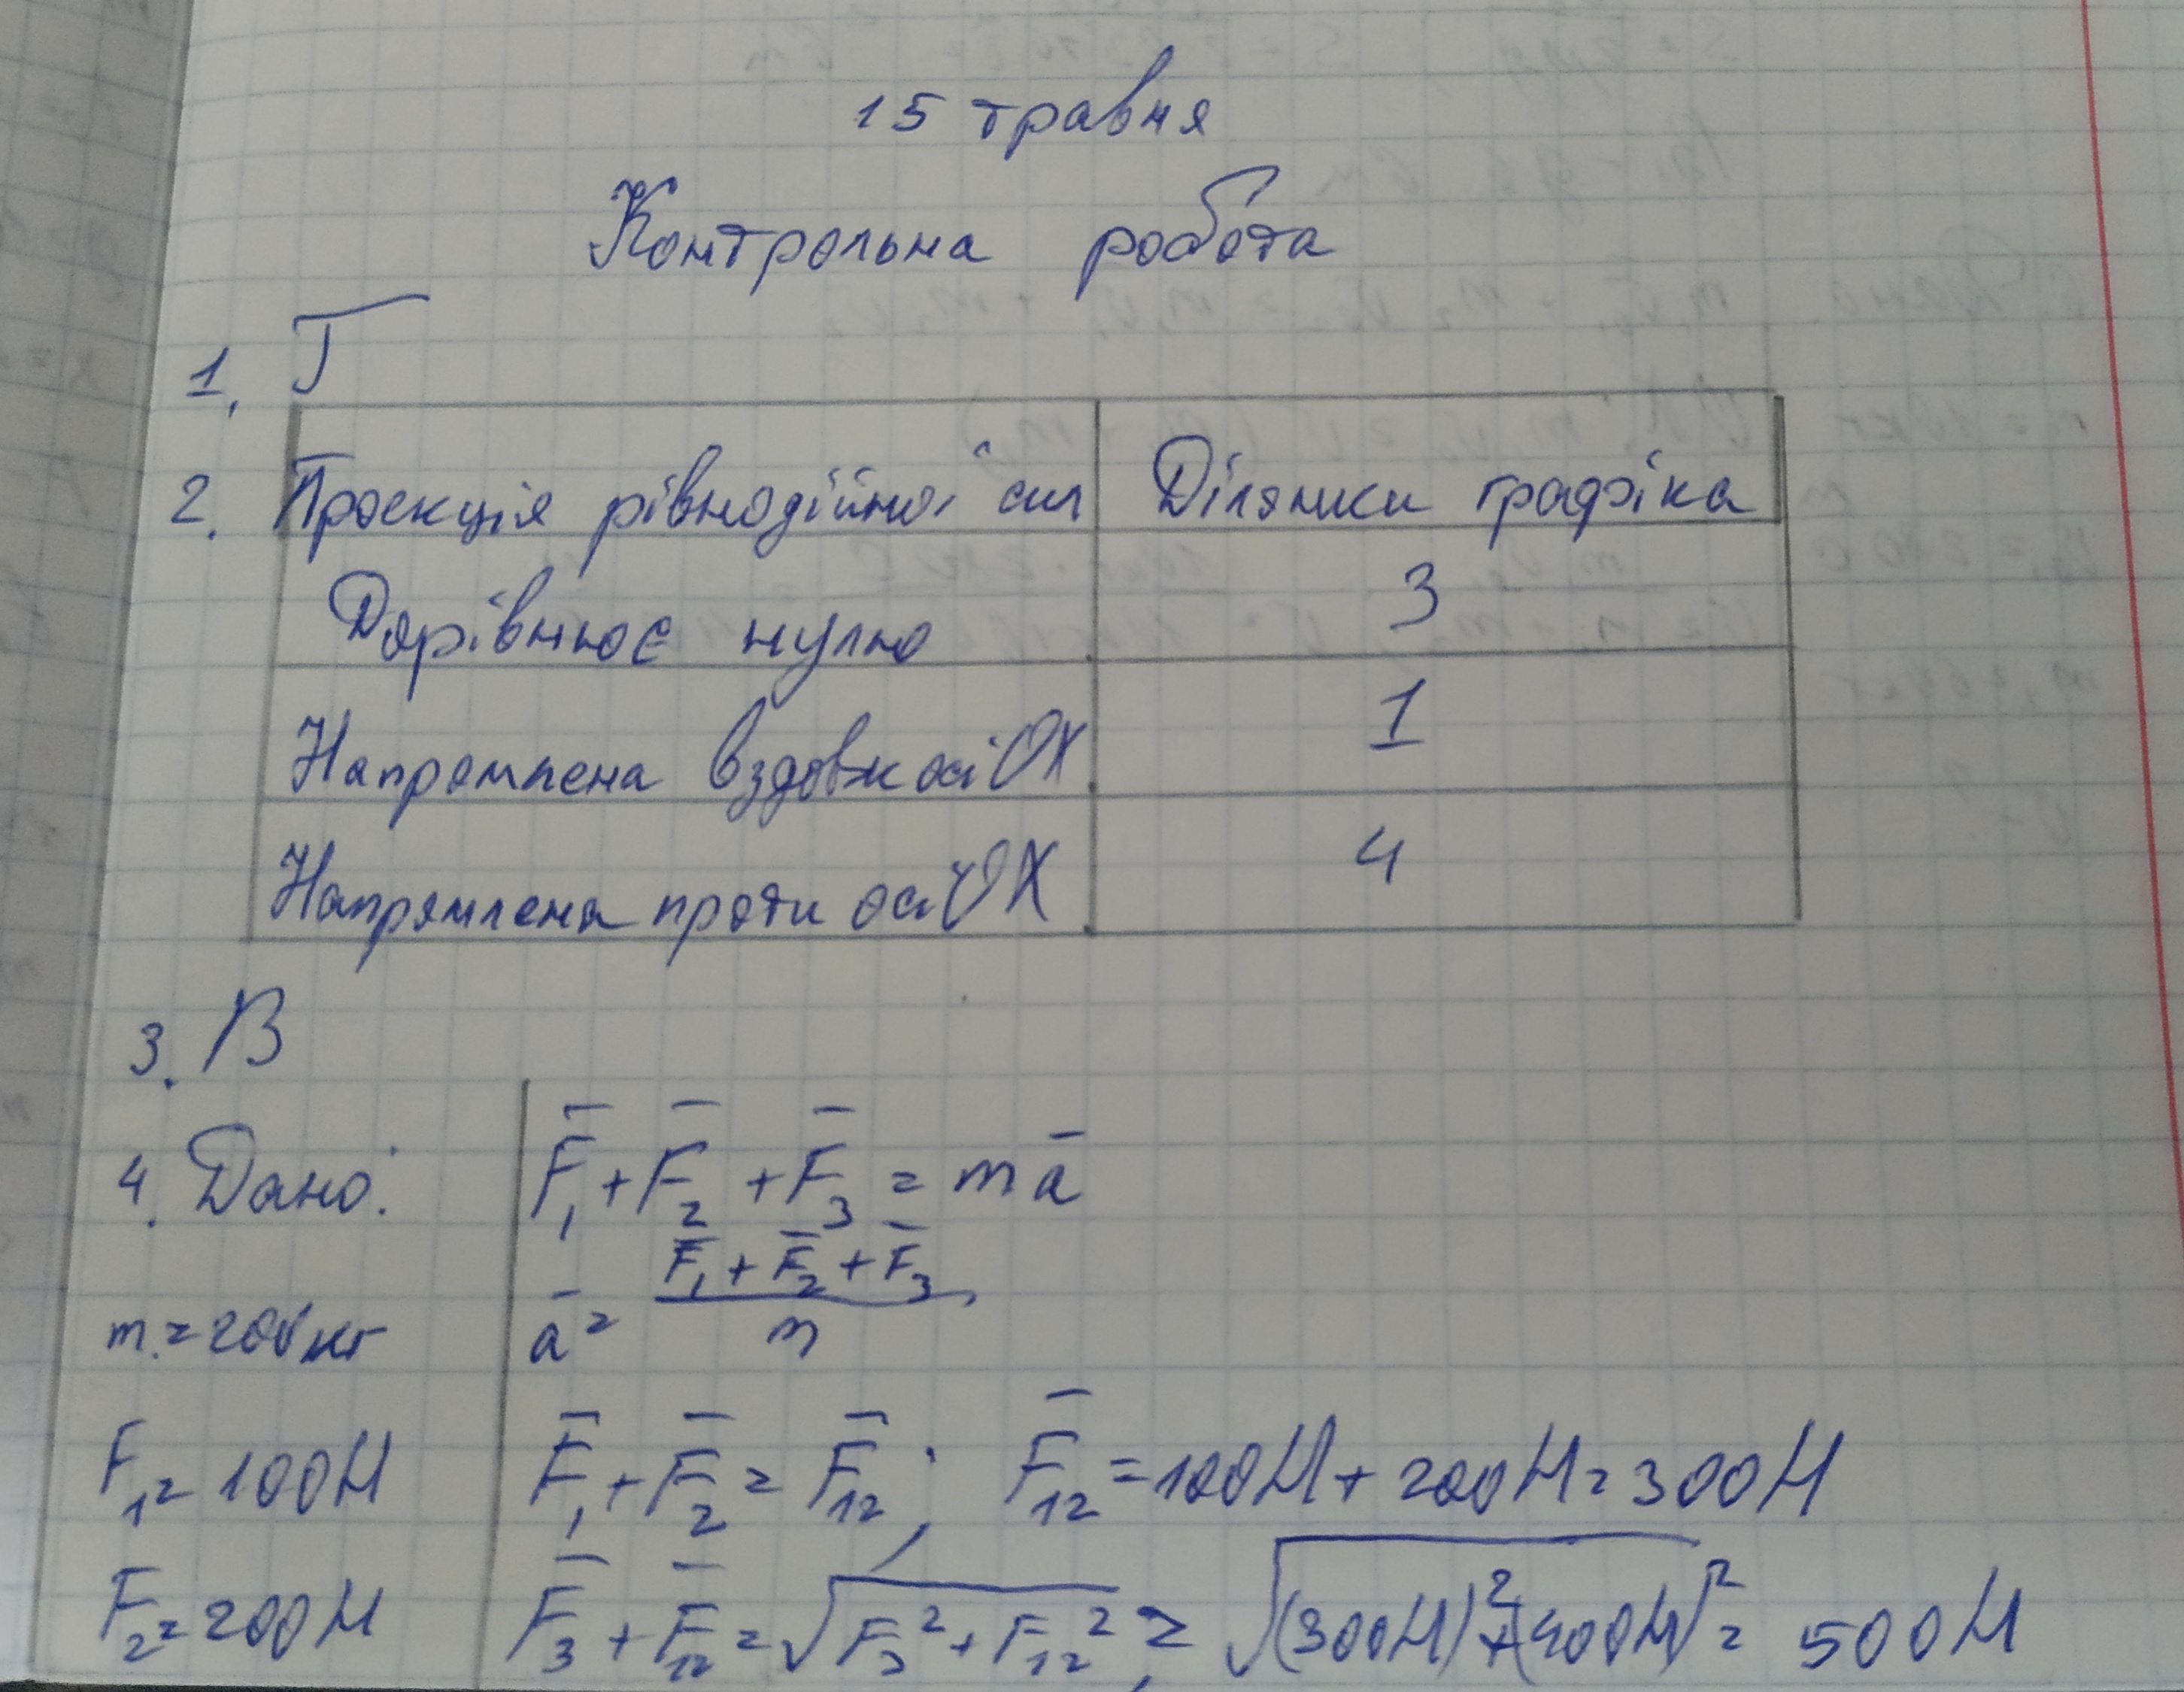 15 травня
Контрольна робота
1. Г
2. Проекція рівнодійної сил | Ділянки графіка
Дорівнює нулю | 3
Напрямлена вздовж осі OX | 1
Напрямлена проти осі OX | 4
3. В
4. Дано:
F̄₁ + F̄₂ + F̄₃ = mā
m = 200кг
ā = (F̄₁ + F̄₂ + F̄₃) / m
F₁ = 100Н
F̄₁ + F̄₂ = F̄₁₂; F̄₁₂ = 100Н + 200Н = 300Н
F₂ = 200Н
F̄₃ + F̄₁₂ = √(F₃² + F₁₂²) = √((300Н)² + (400Н)²) = 500Н